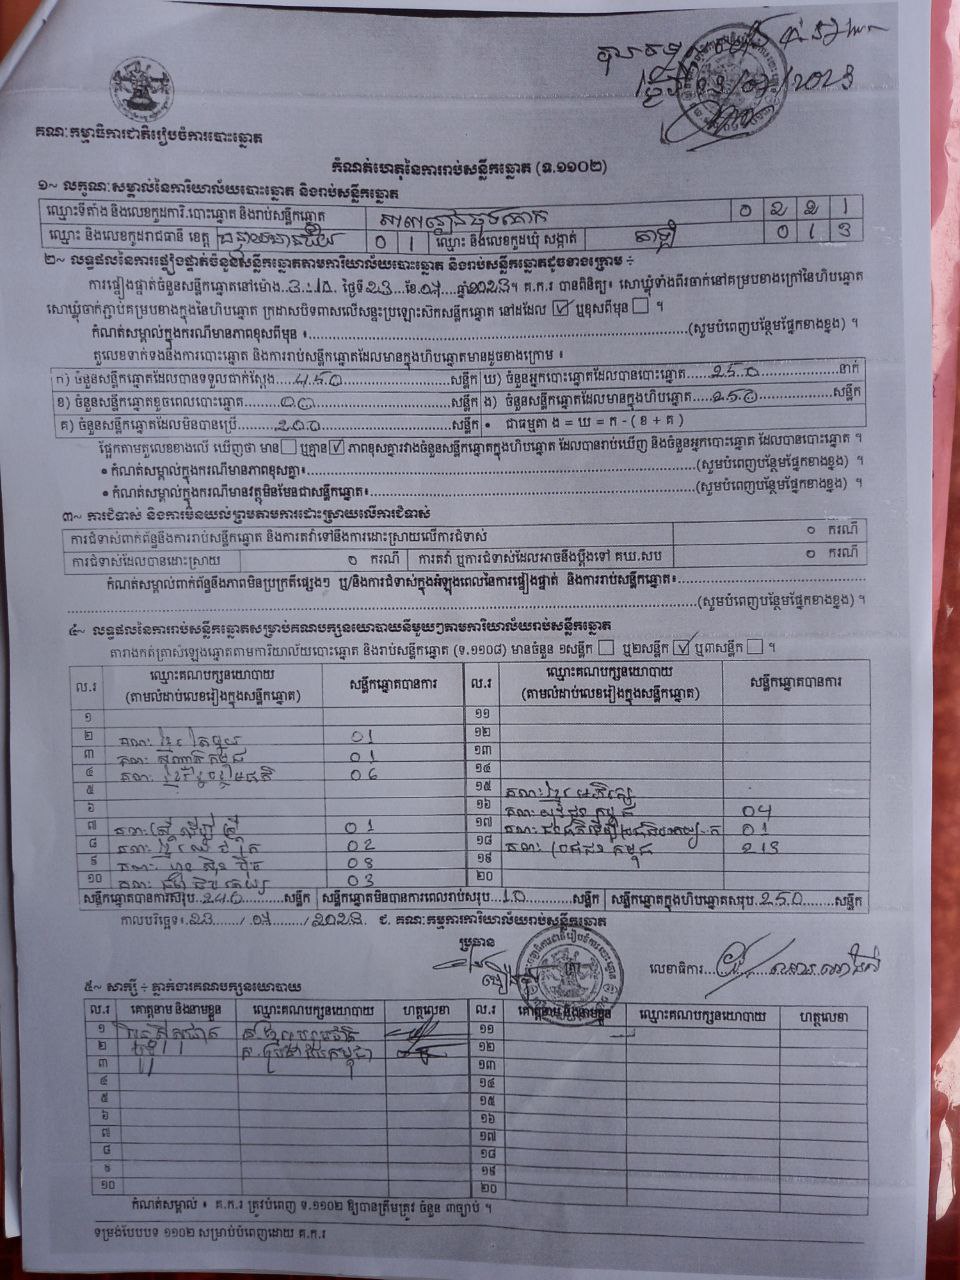 គណៈកម្មាធិការជាតិរៀបចំការបោះឆ្នោត
កំណត់ហេតុនៃការរាប់សន្លឹកឆ្នោត (ទ.១១០២)
១~ លក្ខណៈសម្គាល់នៃការិយាល័យបោះឆ្នោត និងរាប់សន្លឹកឆ្នោត
ឈ្មោះទីតាំង និងលេខកូដការិ.បោះឆ្នោត និងរាប់សន្លឹកឆ្នោត 0 2 2 1
ឈ្មោះ និងលេខកូដរាជធានី ខេត្ត បន្ទាយមានជ័យ 0 1 ឈ្មោះ និងលេខកូដឃុំ សង្កាត់ 0 1 3
២~ លទ្ធផលនៃការផ្ទៀងផ្ទាត់ចំនួនសន្លឹកឆ្នោតតាមការិយាល័យបោះឆ្នោត និងរាប់សន្លឹកឆ្នោតដូចខាងក្រោម ÷
ការផ្ទៀងផ្ទាត់ចំនួនសន្លឹកឆ្នោតនៅម៉ោង 3:10 ថ្ងៃទី 23 ខែ 07 ឆ្នាំ 2023។ គ.ក.រ បានពិនិត្យ៖ សោឃ្លុំទាំងពីរចាក់នៅគម្របខាងក្រៅនៃហិបឆ្នោត
សោឃ្លុំចាក់ភ្ជាប់គម្របខាងក្នុងនៃហិបឆ្នោត ក្រដាសបិទពាសលើសន្ទះប្រឡោះសិកសន្លឹកឆ្នោត នៅដដែល ☑ ឬខុសពីមុន ☐ ។
កំណត់សម្គាល់ក្នុងករណីមានភាពខុសពីមុន ៖ (សូមបំពេញបន្ថែមផ្នែកខាងខ្នង) ។
តួលេខទាក់ទងនឹងការបោះឆ្នោត និងការរាប់សន្លឹកឆ្នោតដែលមានក្នុងហិបឆ្នោតមានដូចខាងក្រោម ៖
ក) ចំនួនសន្លឹកឆ្នោតដែលបានទទួលជាក់ស្តែង 450 សន្លឹក ឃ) ចំនួនអ្នកបោះឆ្នោតដែលបានបោះឆ្នោត 250 នាក់
ខ) ចំនួនសន្លឹកឆ្នោតខូចពេលបោះឆ្នោត 00 សន្លឹក ង) ចំនួនសន្លឹកឆ្នោតដែលមានក្នុងហិបឆ្នោត 250 សន្លឹក
គ) ចំនួនសន្លឹកឆ្នោតដែលមិនបានប្រើ 200 សន្លឹក • ជាធម្មតា ង = ឃ = ក - ( ខ + គ )
ផ្អែកតាមតួលេខខាងលើ ឃើញថា មាន ☐ ឬគ្មាន ☑ ភាពខុសគ្នារវាងចំនួនសន្លឹកឆ្នោតក្នុងហិបឆ្នោត ដែលបានរាប់ឃើញ និងចំនួនអ្នកបោះឆ្នោត ដែលបានបោះឆ្នោត ។
• កំណត់សម្គាល់ក្នុងករណីមានភាពខុសគ្នា៖ (សូមបំពេញបន្ថែមផ្នែកខាងខ្នង) ។
• កំណត់សម្គាល់ក្នុងករណីមានវត្ថុមិនមែនជាសន្លឹកឆ្នោត៖ (សូមបំពេញបន្ថែមផ្នែកខាងខ្នង) ។
៣~ ការជំទាស់ និងការមិនយល់ព្រមតាមការដោះស្រាយលើការជំទាស់
ការជំទាស់ពាក់ព័ន្ធនឹងការរាប់សន្លឹកឆ្នោត និងការតវ៉ាទៅនឹងការដោះស្រាយលើការជំទាស់ ០ ករណី
ការជំទាស់ដែលបានដោះស្រាយ ០ ករណី ការតវ៉ា ឬការជំទាស់ដែលអាចនឹងប្តឹងទៅ គឃ.សប ០ ករណី
កំណត់សម្គាល់ពាក់ព័ន្ធនឹងភាពមិនប្រក្រតីផ្សេងៗ ឬ/និងការជំទាស់ក្នុងអំឡុងពេលនៃការផ្ទៀងផ្ទាត់ និងការរាប់សន្លឹកឆ្នោត៖
(សូមបំពេញបន្ថែមផ្នែកខាងខ្នង) ។
៤~ លទ្ធផលនៃការរាប់សន្លឹកឆ្នោតសម្រាប់គណបក្សនយោបាយនីមួយៗតាមការិយាល័យរាប់សន្លឹកឆ្នោត
តារាងកត់ត្រាសំឡេងឆ្នោតតាមការិយាល័យបោះឆ្នោត និងរាប់សន្លឹកឆ្នោត (ទ.១១០៨) មានចំនួន ១សន្លឹក ☐ ឬ២សន្លឹក ☑ ឬ៣សន្លឹក ☐ ។
ល.រ ឈ្មោះគណបក្សនយោបាយ (តាមលំដាប់លេខរៀងក្នុងសន្លឹកឆ្នោត) សន្លឹកឆ្នោតបានការ ល.រ ឈ្មោះគណបក្សនយោបាយ (តាមលំដាប់លេខរៀងក្នុងសន្លឹកឆ្នោត) សន្លឹកឆ្នោតបានការ
១ ១១
២ គណៈ ខ្មែរ តែមួយ 01 ១២
៣ 01 ១៣
៤ គណៈ 06 ១៤
៥ ១៥ គណៈ ខ្មែរ អភិរក្ស
៦ ១៦ គណៈ យុវជន កម្ពុជា 04
៧ 01 ១៧ 01
៨ គណៈ 02 ១៨ គណៈ ប្រជាជន កម្ពុជា 213
៩ គណៈ ហ្វុន ស៊ិន ប៉ិច ១៩
១០ គណៈ 03 ២០
សន្លឹកឆ្នោតបានការសរុប 240 សន្លឹក សន្លឹកឆ្នោតមិនបានការពេលរាប់សរុប 10 សន្លឹក សន្លឹកឆ្នោតក្នុងហិបឆ្នោតសរុប 250 សន្លឹក
កាលបរិច្ឆេទ៖ 23 / 07 / 2023 ជ. គណៈកម្មការការិយាល័យរាប់សន្លឹកឆ្នោត
ប្រធាន
លេខាធិការ
៥~ សាក្សី ÷ ភ្នាក់ងារគណបក្សនយោបាយ
ល.រ គោត្តនាម និងនាមខ្លួន ឈ្មោះគណបក្សនយោបាយ ហត្ថលេខា ល.រ គោត្តនាម និងនាមខ្លួន ឈ្មោះគណបក្សនយោបាយ ហត្ថលេខា
១ ១១
២ ១២
៣ ១៣
៤ ១៤
៥ ១៥
៦ ១៦
៧ ១៧
៨ ១៨
៩ ១៩
១០ ២០
កំណត់សម្គាល់ ៖ គ.ក.រ ត្រូវបំពេញ ទ.១១០២ ឱ្យបានត្រឹមត្រូវ ចំនួន ៣ច្បាប់ ។
ទម្រង់បែបបទ ១១០២ សម្រាប់បំពេញដោយ គ.ក.រ